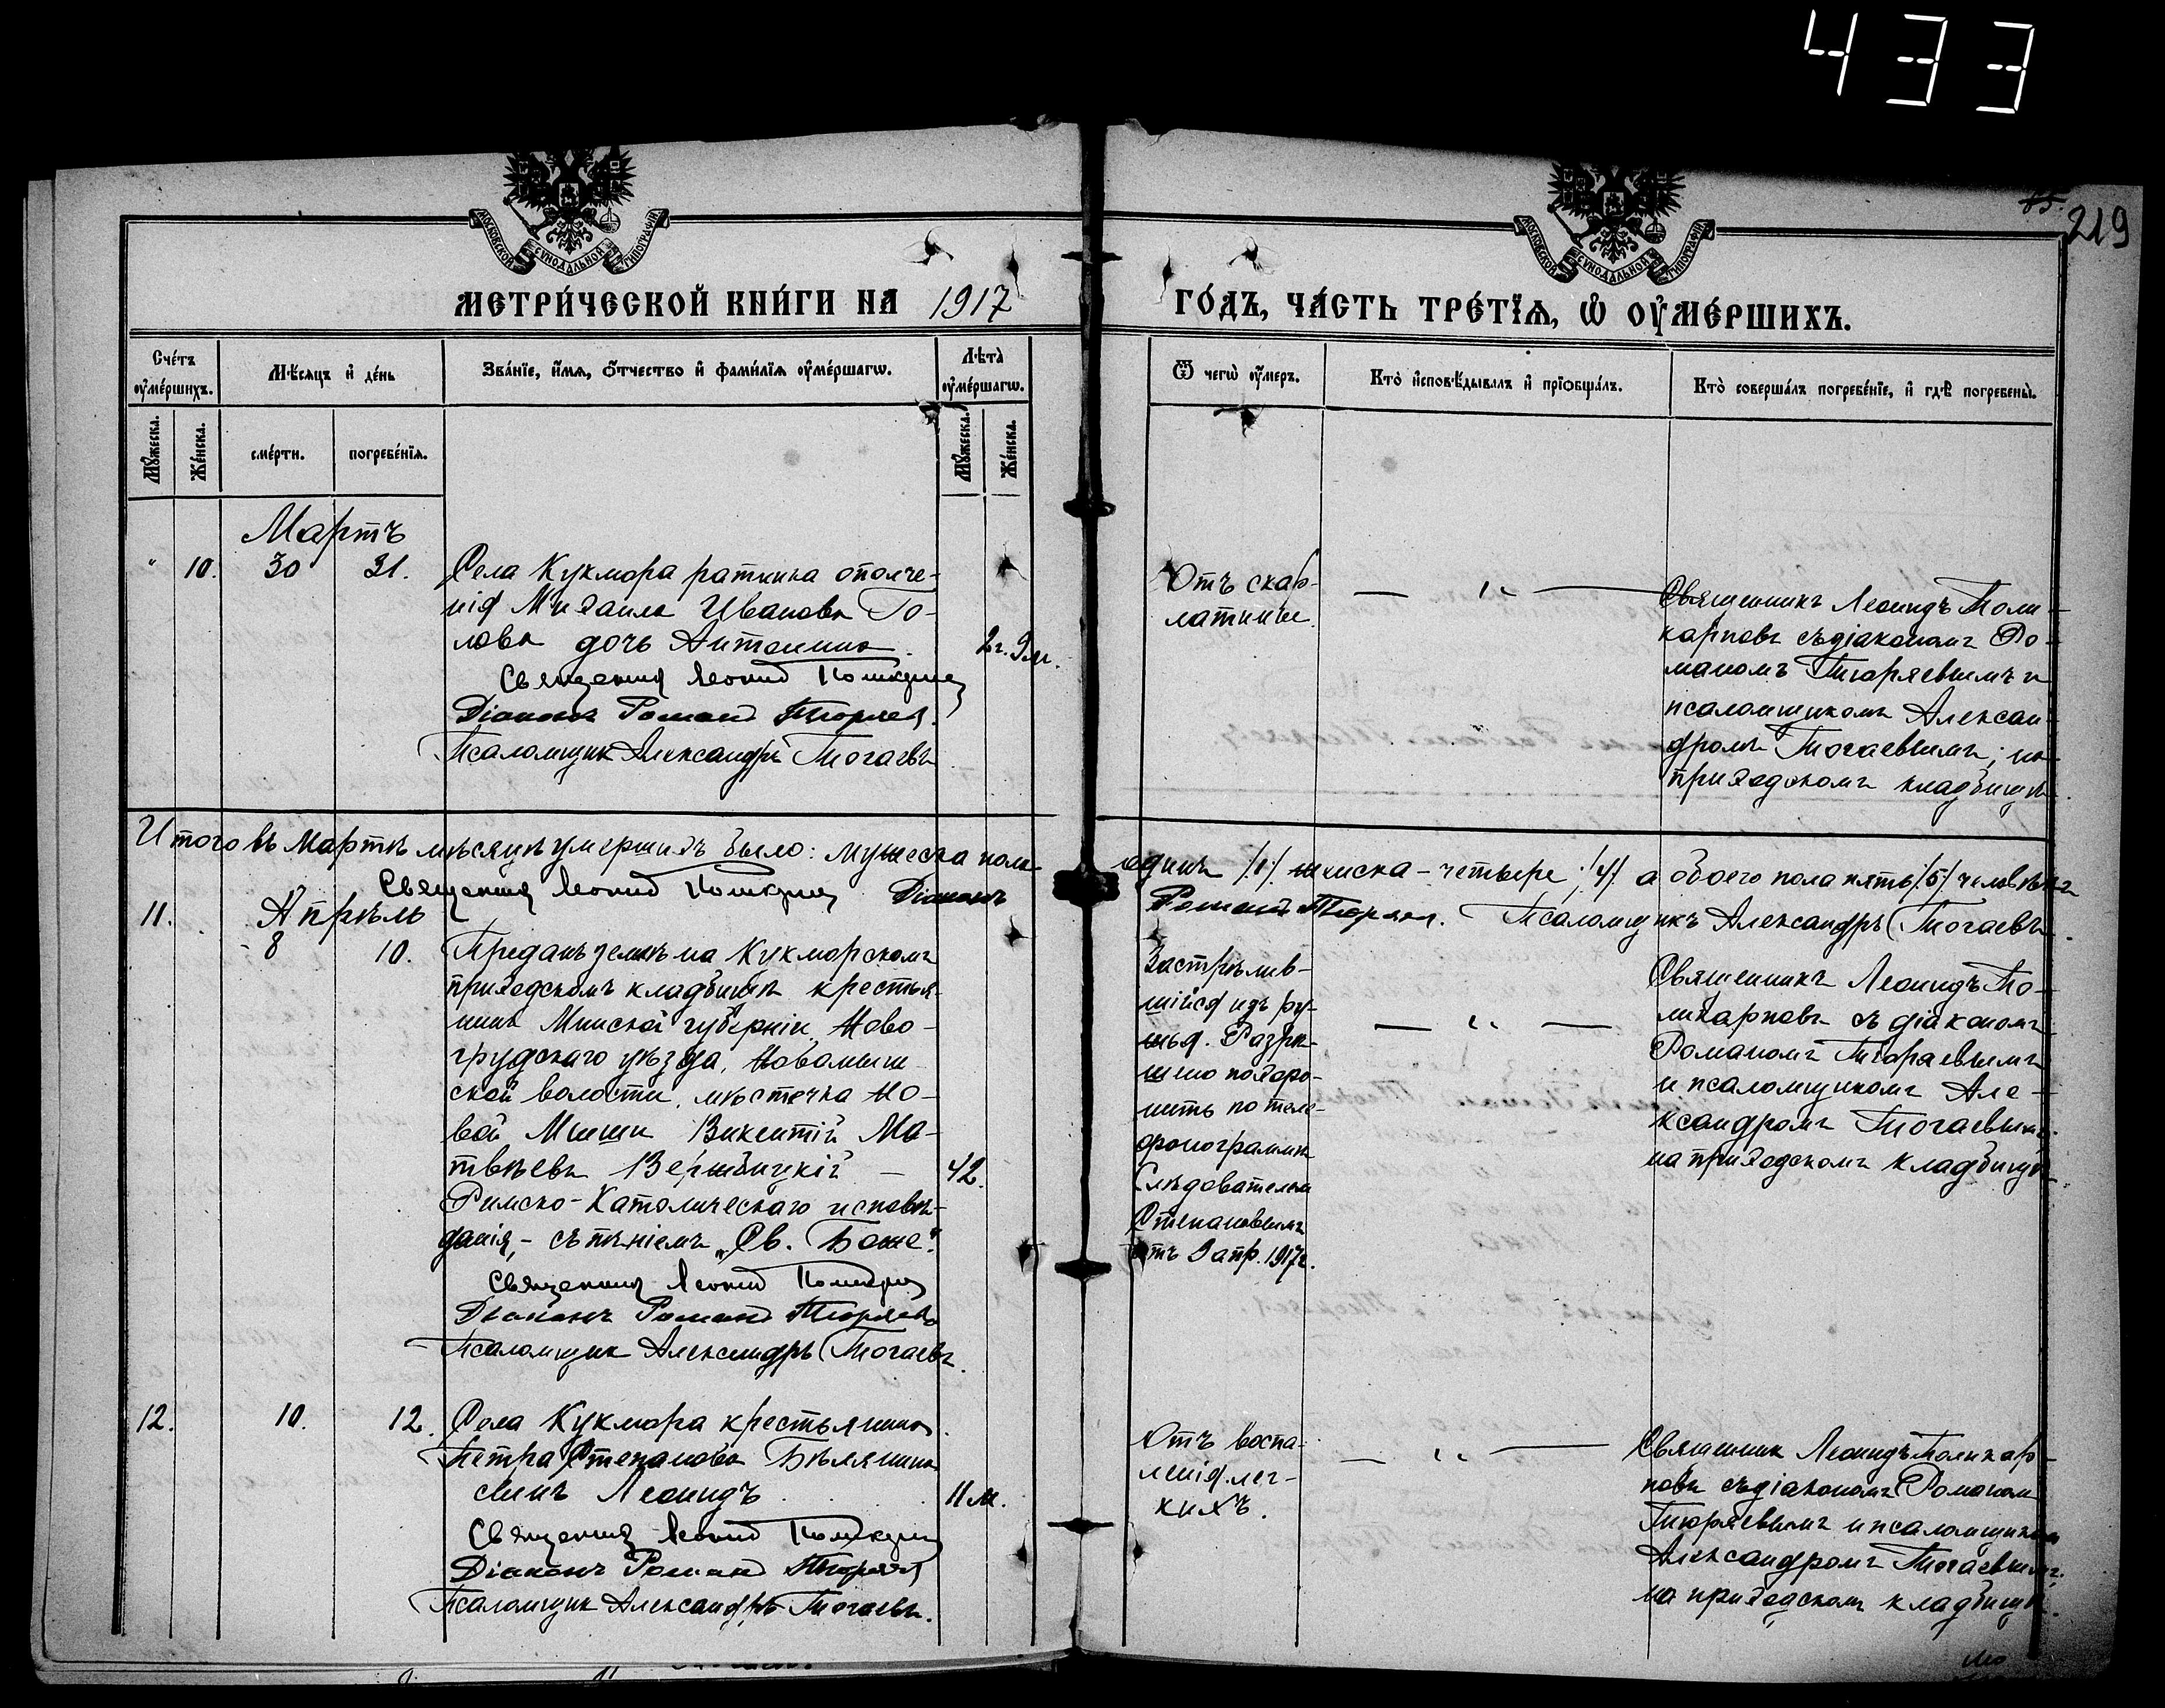 433
85
219
МОСКОВСКОЙ СУНОДАЛЬНОЙ ТИПОГРАФІИ
МОСКОВСКОЙ СУНОДАЛЬНОЙ ТИПОГРАФІИ
МЕТРИ́ЧЕСКОЙ КНИ́ГИ НА 1917 ГО́ДЪ, ЧА́СТЬ ТРЕ́ТІѦ, Ѡ҆ ОУ҆МЕ́РШИХЪ.
Сче́тъ оу҆ме́ршихъ.
Мѣ́сяцъ и҆ де́нь
Зва́нїе, и҆́мѧ, ѻ҆́тчество и҆ фами́лїѧ оу҆ме́ршагѡ.
Лѣ́та оу҆ме́ршагѡ.
Ѿ чегѡ̀ оу҆́меръ.
Кто̀ и҆сповѣ́дывалъ и҆ прїѡбща́лъ.
Кто̀ соверша́лъ погребе́нїе, и҆ гдѣ̀ погребены̀.
Мꙋ́жеска.
Же́нска.
сме́рти.
погребе́нїѧ.
Мꙋ́жеска.
Же́нска.
Мартъ
" 10. 30 31.
Села Кукмора ратника ополче-
нія Михаила Иванова Го-
лова дочь Антонина.
2г. 9м.
Священник Леонид Поликарпов
Діаконъ Роман Тюряев.
Псаломщик Александръ Тогаевъ
Отъ скар-
латины.
— " —
Священникъ Леонидъ Поли-
карповъ съ діакономъ Ро-
маномъ Тюряевымъ и
псаломщикомъ Алексан-
дромъ Тогаевымъ; на
приходскомъ кладбищѣ.
Итого въ Мартѣ мѣсяцѣ умершихъ было: мужеска пола одинъ /1/ женска - четыре /4/ а обоего пола пять /5/ человѣкъ
Священник Леонид Поликарпов Діаконъ Роман Тюряев. Псаломщикъ Александръ Тогаевъ.
Апрѣль
11. 8 10.
Преданъ землѣ на Кукморскомъ
приходскомъ кладбищѣ крестья-
нинъ Минской губерніи, Ново-
грудскаго уѣзда, Новомыш-
ской волости, мѣстечка Но-
вой Мыши Викентій Ма-
твѣевъ Вержбицкій —
42.
Римско-Католическаго исповѣ-
данія, - съ пѣніемъ „Св. Боже".
Священник Леонид Поликарпов
Діаконъ Роман Тюряевъ
Псаломщик Александръ Тогаевъ.
Застрѣлив-
шійся изъ ру-
жья. Разрѣ-
шено похоро-
нить по теле-
фонограммѣ
Слѣдователем
Степановымъ
отъ 9 апр. 1917г.
— " —
Священникъ Леонидъ По-
ликарповъ съ діакономъ
Романомъ Тюряевымъ
и псаломщикомъ Але-
ксандромъ Тогаевымъ;
на приходскомъ кладбищѣ.
12. 10. 12.
Села Кукмора крестьянина
Петра Степанова Бѣлянина
сынъ Леонидъ
11 м.
Священник Леонид Поликарпов
Діаконъ Роман Тюряев
Псаломщик Александръ Тогаевъ.
Отъ воспа-
ленія лег-
кихъ.
— " —
Священник Леонидъ Поликар-
повъ съ діакономъ Романом
Тюряевымъ и псаломщиком
Александромъ Тогаевымъ;
на приходскомъ кладбищѣ.